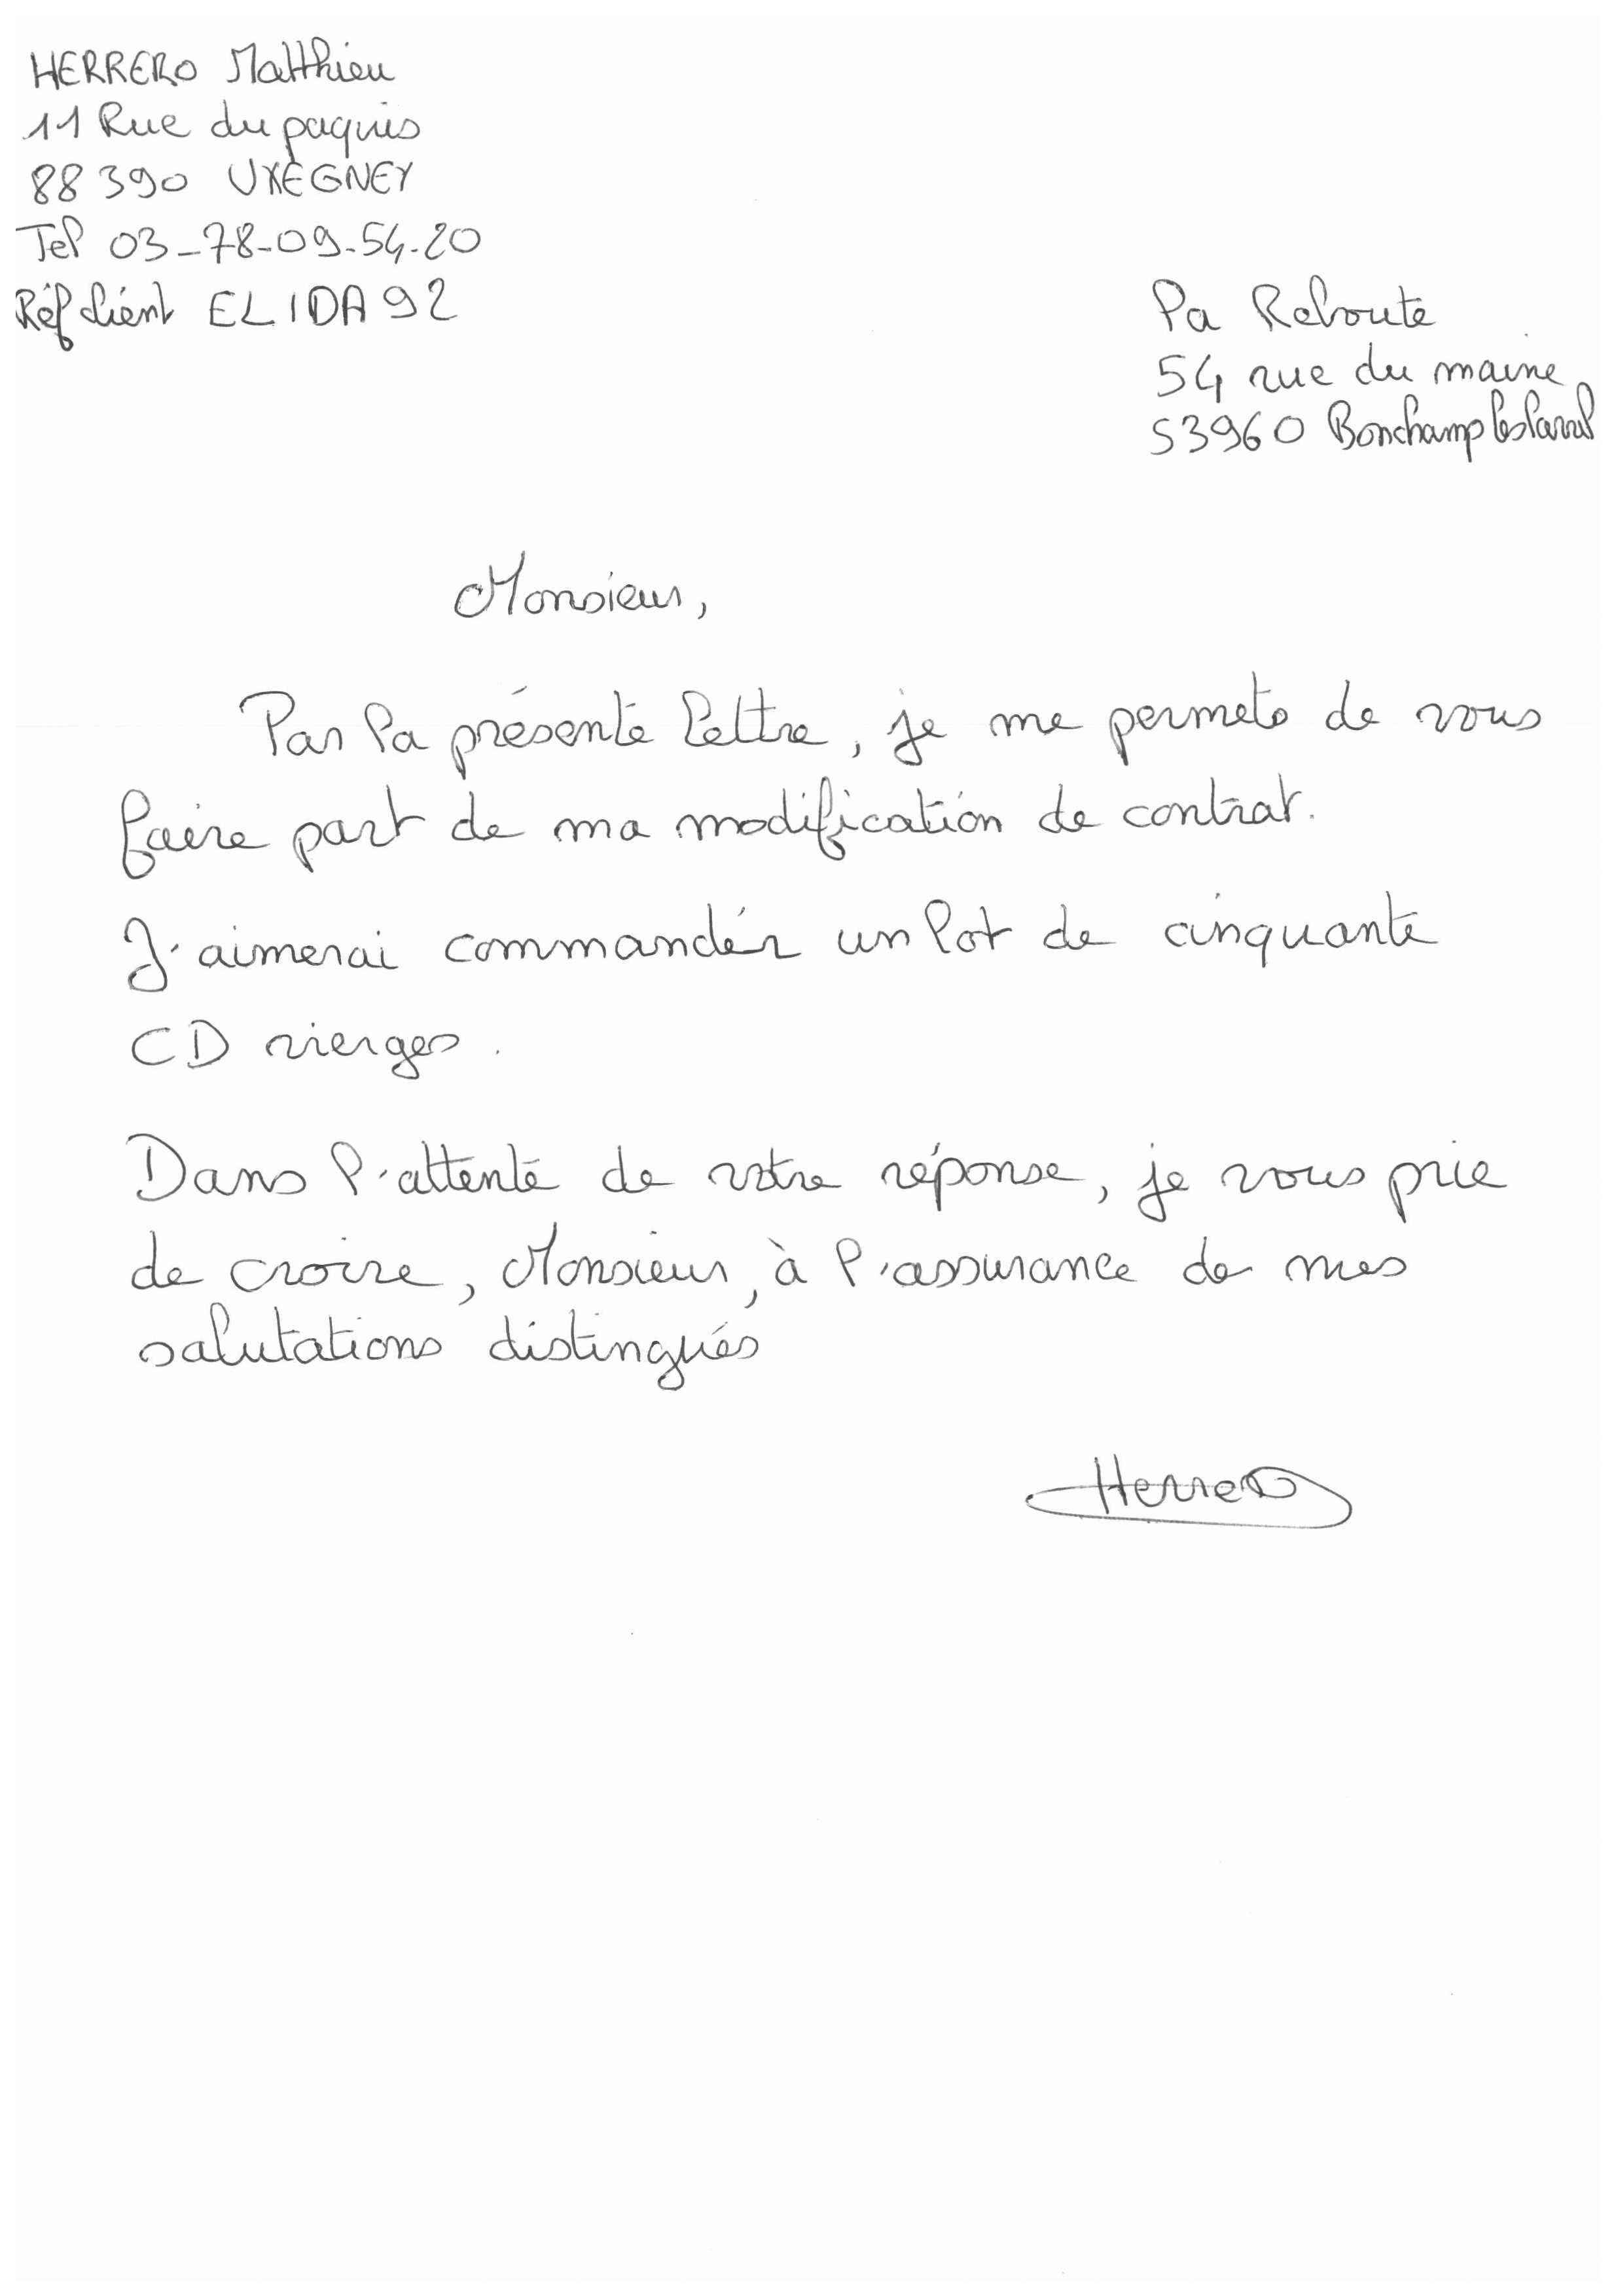 HERRERO Matthieu
11 Rue du paquis
88390 UXEGNEY
Tel 03-78-09-54-20
Réf client ELIDA92
la Reboute
54 rue du maine
53960 Bonchamp les laval
Monsieur,
Par la présente lettre, je me permets de vous
faire part de ma modification de contrat.
J'aimerai commander un lot de cinquante
CD vierges.
Dans l'attente de votre réponse, je vous prie
de croire, Monsieur, à l'assurance de mes
salutations distingués
Herrero